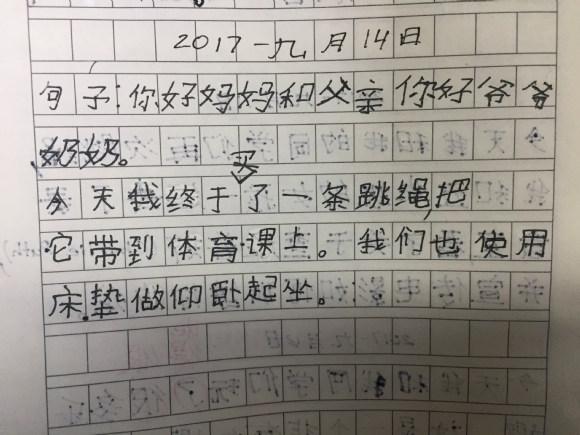 2017一九月14日
句子:你好妈妈和父亲你好爷爷
奶奶。
今天我终于买了一条跳绳,把
它带到体育课上。我们也使用
床垫做仰卧起坐。